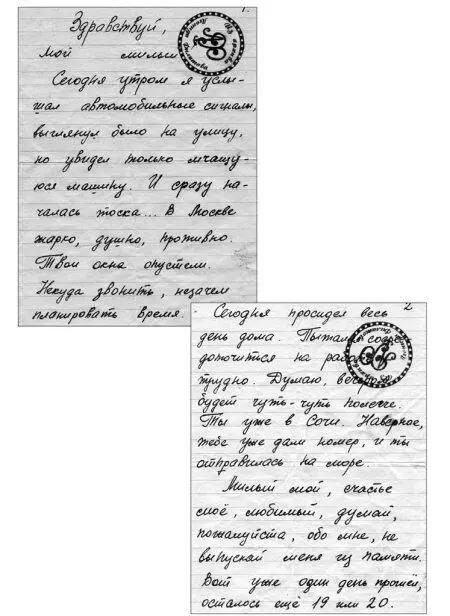 1.
Здравствуй,
мой милый
Сегодня утром я услы-
шал автомобильные сигналы,
выглянул было на улицу,
но увидел только мчащу-
юся машину. И сразу на-
чалась тоска... В Москве
жарко, душно, противно.
Твои окна опустели.
Некуда звонить, незачем
планировать время.
2
Сегодня просидел весь
день дома. Пытаюсь
на
трудно. Думаю,
будет чуть-чуть полегче.
Ты уже в Сочи. Наверное,
тебе уже дали номер, и ты
отправилась на море.
Милый мой, счастье
моё, любимый, думай,
пожалуйста, обо мне, не
выпускай меня из памяти.
Вот уже один день прошёл,
осталось ещё 19 или 20.